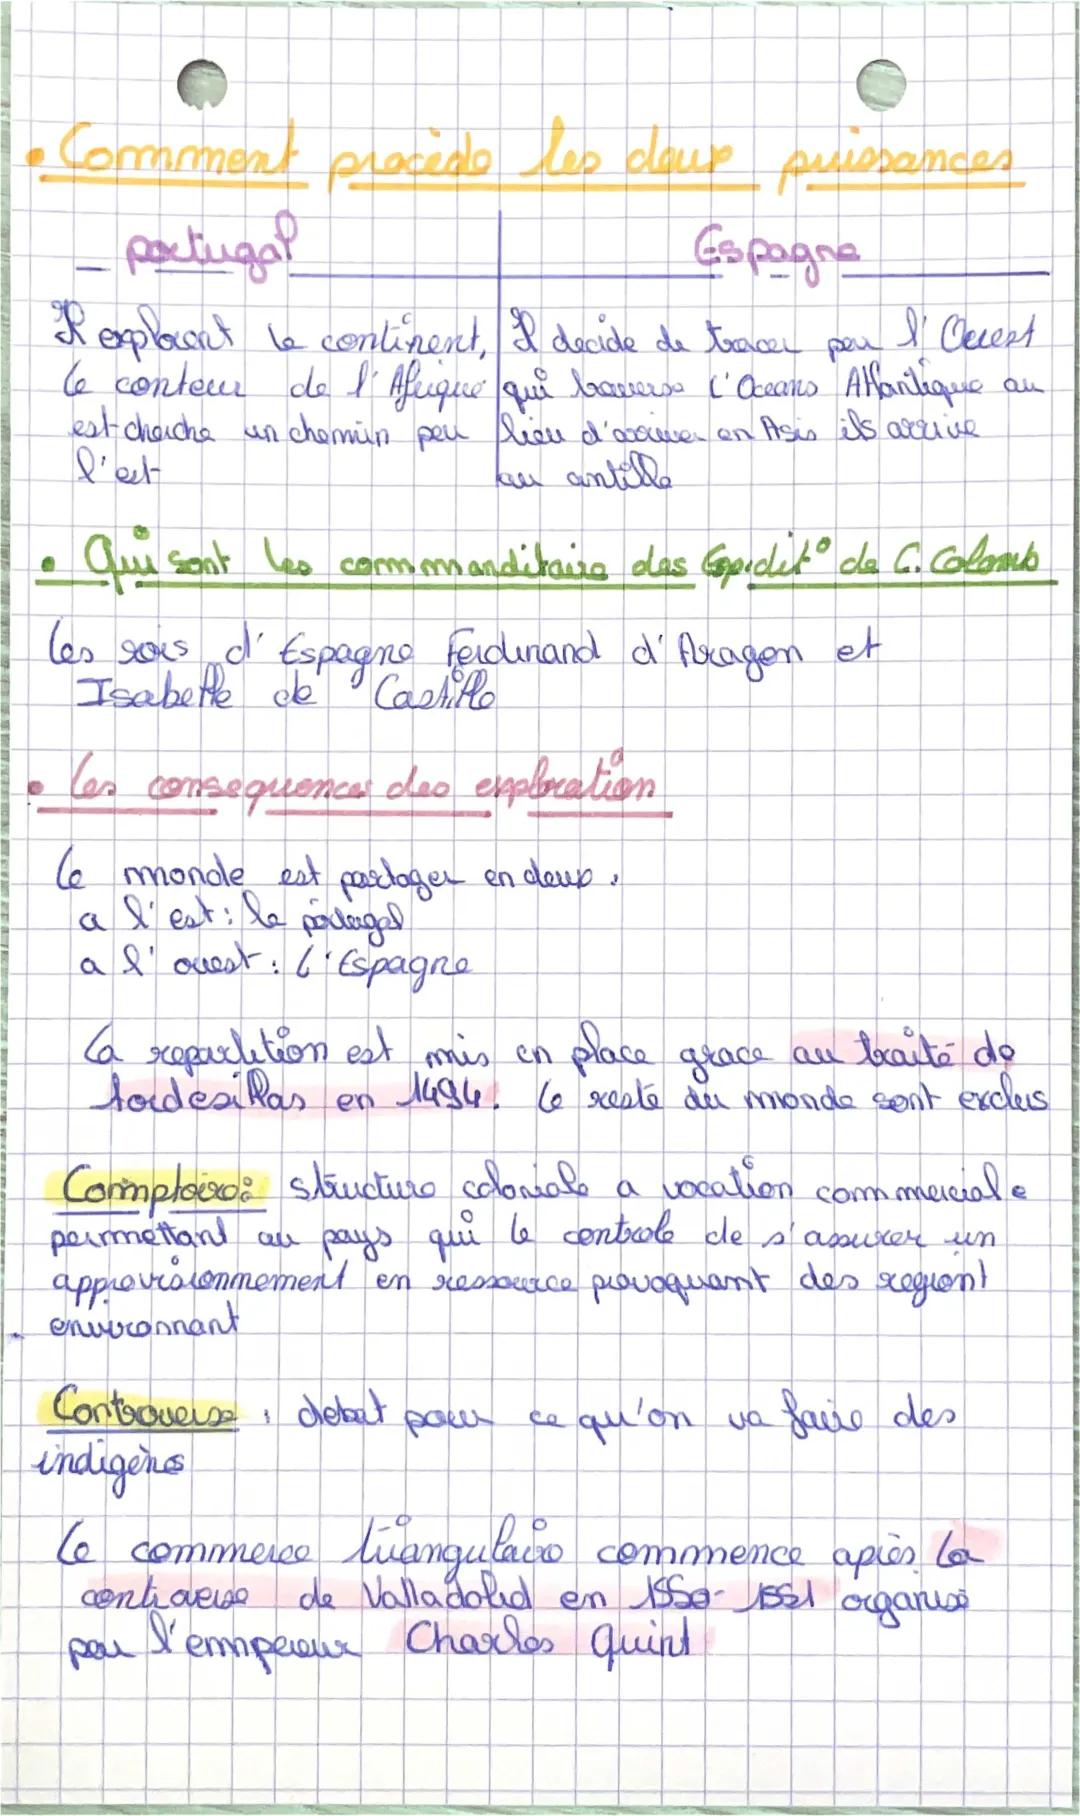 • Comment procède les deux puissances
portugal
Espagne
Il explorent le continent,
le conteur de l'Afrique
est cherche un chemin par
l'est
Il decide de tracer par l'Ouest
qui traverse l'Oceans Atlantique au
lieu d'arriver en Asis ils arrive
au antille
• Qui sont les commanditaire des Expedit° de C. Colomb
les rois d'Espagne Ferdinand d'Aragon et
Isabelle de Castille
• les consequences des exploration
le monde est partager en deux :
a l'est : le portugal
a l'ouest : l'Espagne
la repartition est mis en place grace au traité de
tordesillas en 1494. le reste du monde sont exclus
Comptoire : structure coloniale a vocation commerciale
permettant au pays qui le controle de s'assurer un
approvisionnement en ressource provoquant des regiont
environnant
Controverse : debat pour ce qu'on va faire des
indigènes
le commerce triangulaire commence après la
controverse de Valladolid en 1550-1551 organisé
par l'empereur Charles Quint